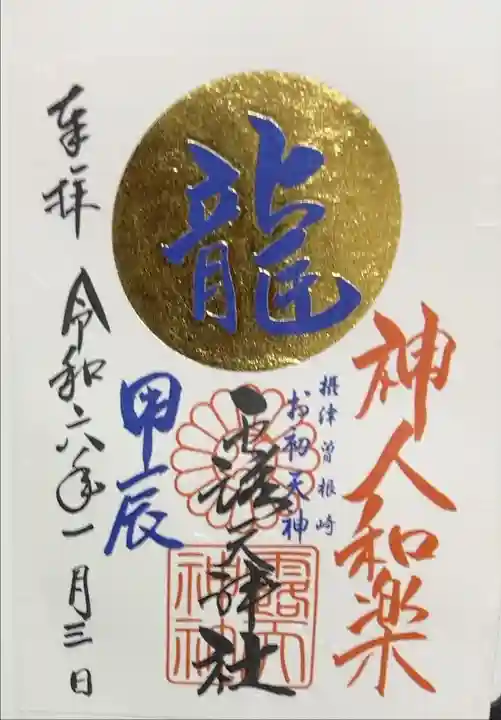 龍
神人和楽
摂津曽根崎
お初天神
露天神社
甲辰
奉拝
令和六年一月三日